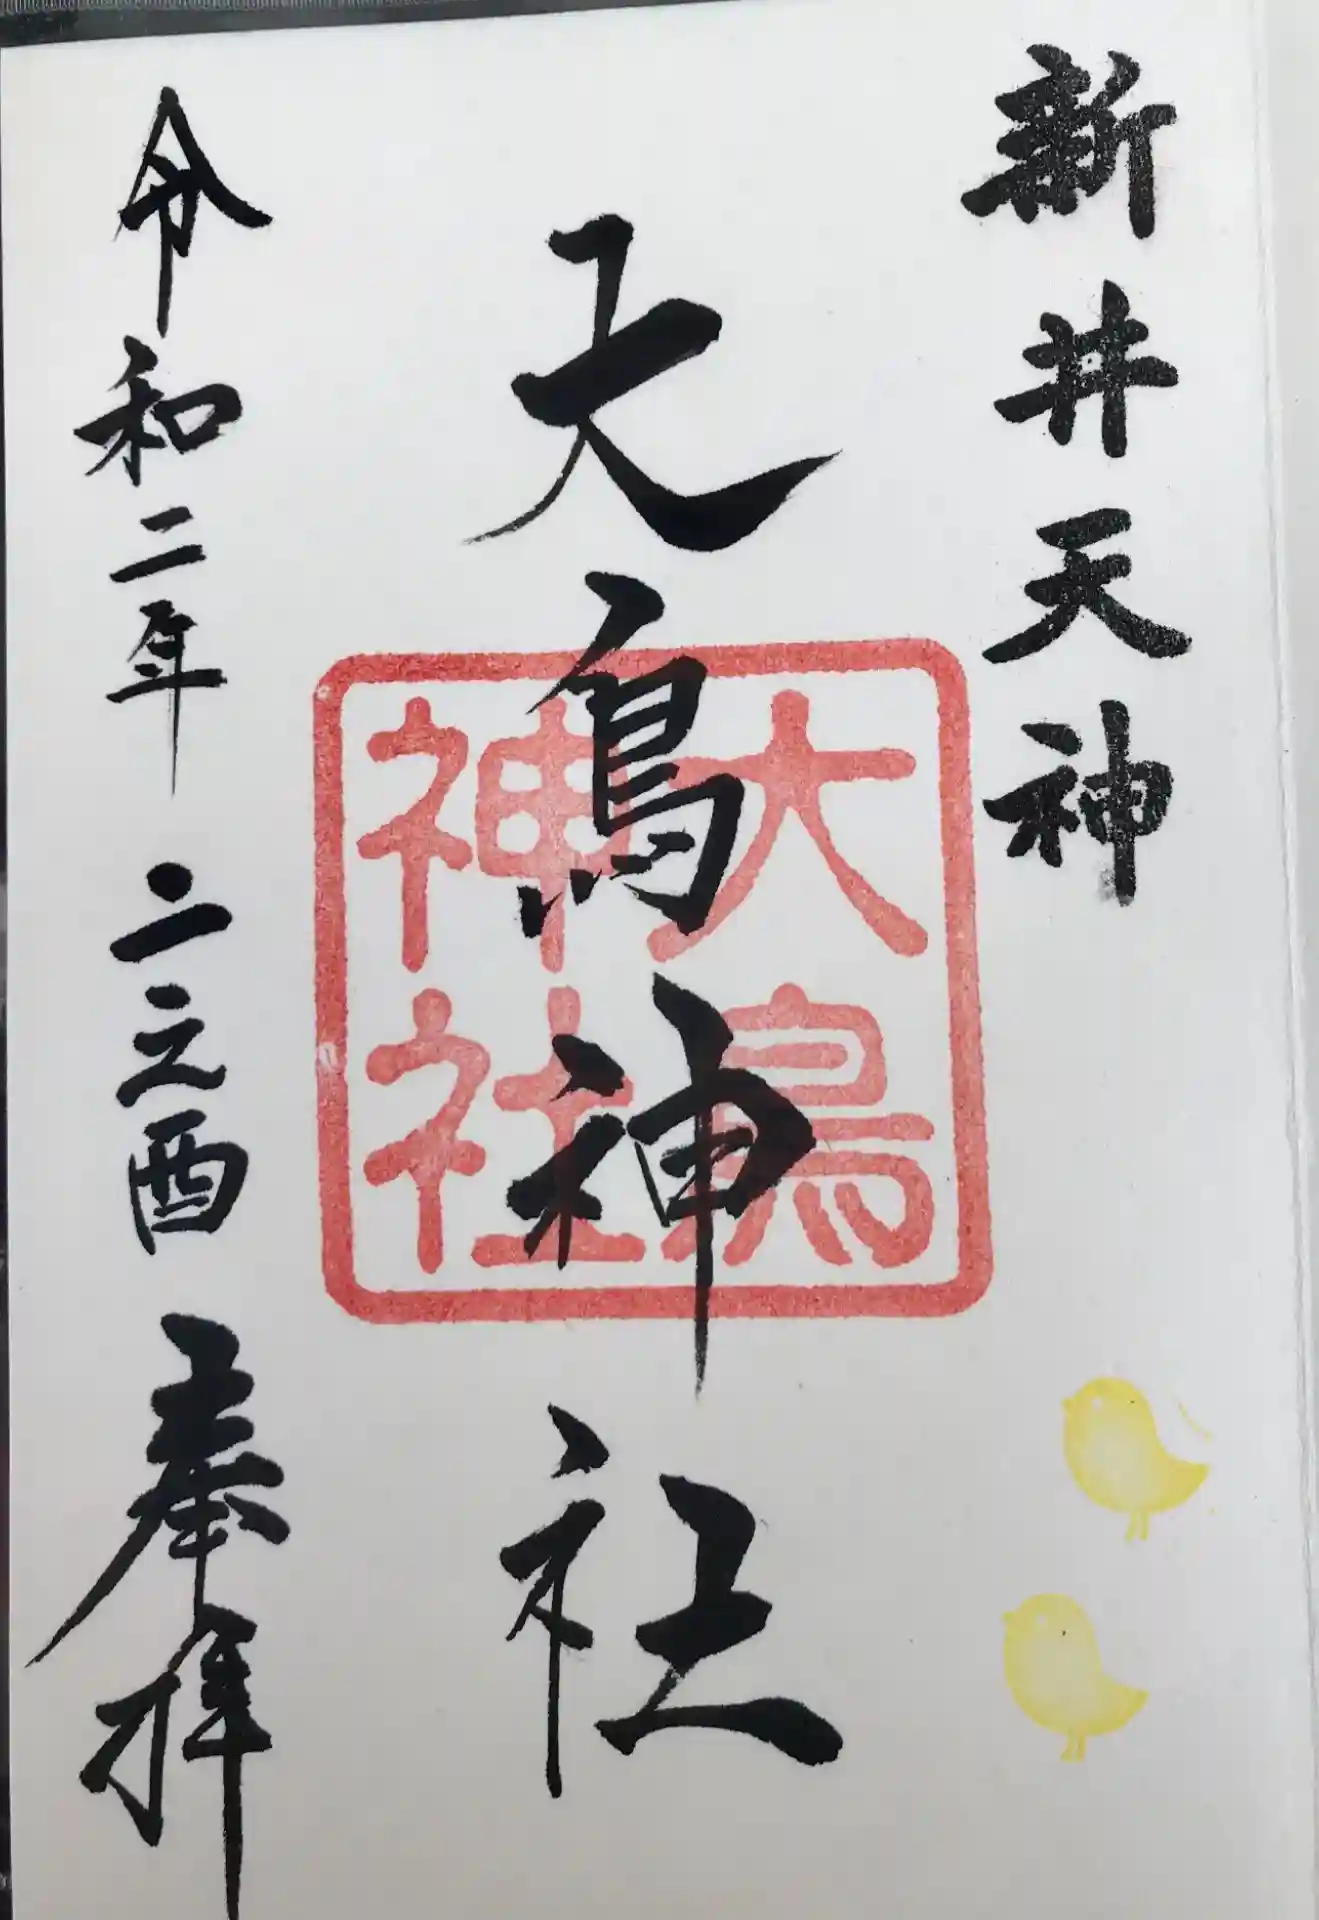 新井天神
大鳥神社
大鳥
神社
令和二年 二之酉 奉拝